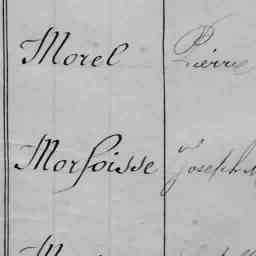 Morel Pierre
Morsoisse Joseph